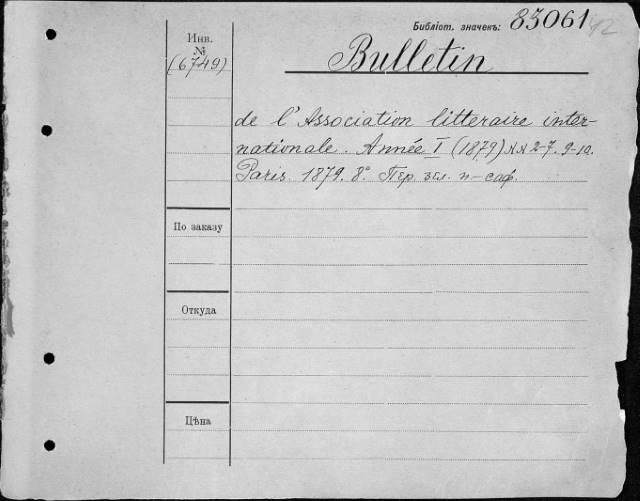 Библіот. значекъ: 83061
Инв.
№
(6749)
Bulletin
de l'Association litteraire inter-
nationale. Année I (1879) NN 2-7. 9-10.
Paris. 1879. 8°. Пер. зел. п-саф.
По заказу
Откуда
Цѣна